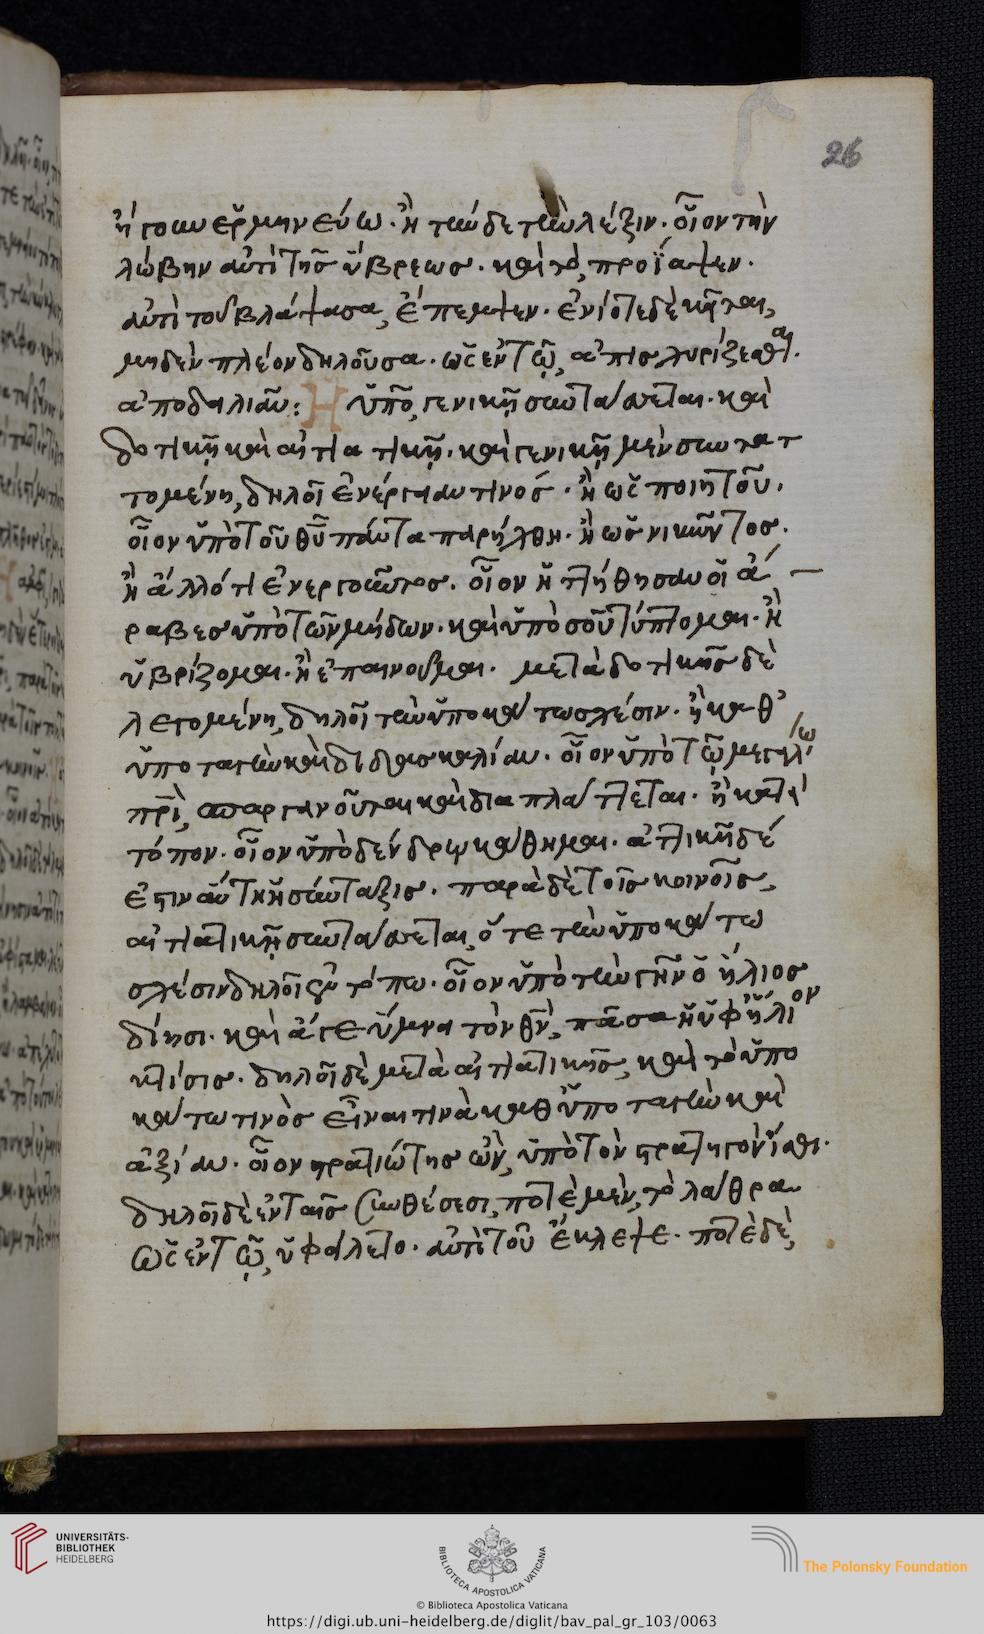 26
ἤγουν ἑρμηνεύω· ἢ τήνδε τὴν λέξιν· οἷον τὴν
λώβην ἀντὶ τῆς ὕβρεως· καὶ τὸ, προΐαψεν·
ἀντὶ τοῦ βλάψασα, ἔπεμψεν· ἐνίοτε δὲ κεῖται,
μηδὲν πλέον δηλοῦσα· ὡς ἐν τῷ,
ἀποδειλιᾶν: Ἡ ὑπὸ, γενικῇ συντάσσεται· καὶ
δοτικῇ καὶ αἰτιατικῇ· καὶ γενικῇ μὲν συντατ
τομένη, δηλοῖ ἐνέργειαν τινός· ἢ ὡς ποιητοῦ·
οἷον ὑπὸ τοῦ θῦ πάντα παρήχθη· ἢ ὡς νικῶντος·
ἢ ἄλλό τι ἐνεργοῦντος· οἷον ἡττήθησαν οἱ ἄ
ραβες ὑπὸ τῶν μήδων· καὶ ὑπὸ σοῦ τύπτομαι· ἢ
ὑβρίζομαι· ἢ ἐπαινοῦμαι· μετὰ δοτικῆς δὲ
λεγομένη, δηλοῖ τὴν ὑποκάτω σχέσιν· ἢ καθ'
ὑποταγὴν καὶ διδασκαλίαν· οἷον ὑπὸ τῷ μεγάλῳ
πρὶ, σπαργανοῦται καὶ διαπλάττεται· ἢ κατὰ
τόπον· οἷον ὑπὸ δένδρῳ κάθημαι· ἀττικὴ δέ
ἐστιν αὕτη ἡ σύνταξις· παρὰ δὲ τοῖς κοινοῖς,
αἰτιατικῇ συντάσσεται, ὅτε τὴν ὑποκάτω
σχέσιν δηλοῖ ἐν τόπω· οἷον ὑπὸ τὴν γῆν ὁ ἥλιος
δύησι· καὶ ἄγε ὕμνει τὸν θν, πᾶσα ἡ ὑφήλιον
κτίσις· δηλοῖ δὲ μετὰ αἰτιατικῆς, καὶ τὸ ὑπο
κάτω τινὸς εἶναι τινὰ καθ' ὑποταγὴν καὶ
ἀξίαν· οἷον στρατιώτης ὢν, ὑπὸ τὸν στρατηγὸν ἴσθι·
δηλοῖ δὲ ἐν ταῖς συνθέσεσι, ποτὲ μὲν, τὸ λάθρα
ὡς ἐν τῷ, ὑφείλετο· ἀντὶ τοῦ ἔκλεψε· ποτὲ δὲ,
UNIVERSITÄTS-
BIBLIOTHEK
HEIDELBERG
BIBLIOTECA APOSTOLICA VATICANA
The Polonsky Foundation
© Biblioteca Apostolica Vaticana
https://digi.ub.uni-heidelberg.de/diglit/bav_pal_gr_103/0063